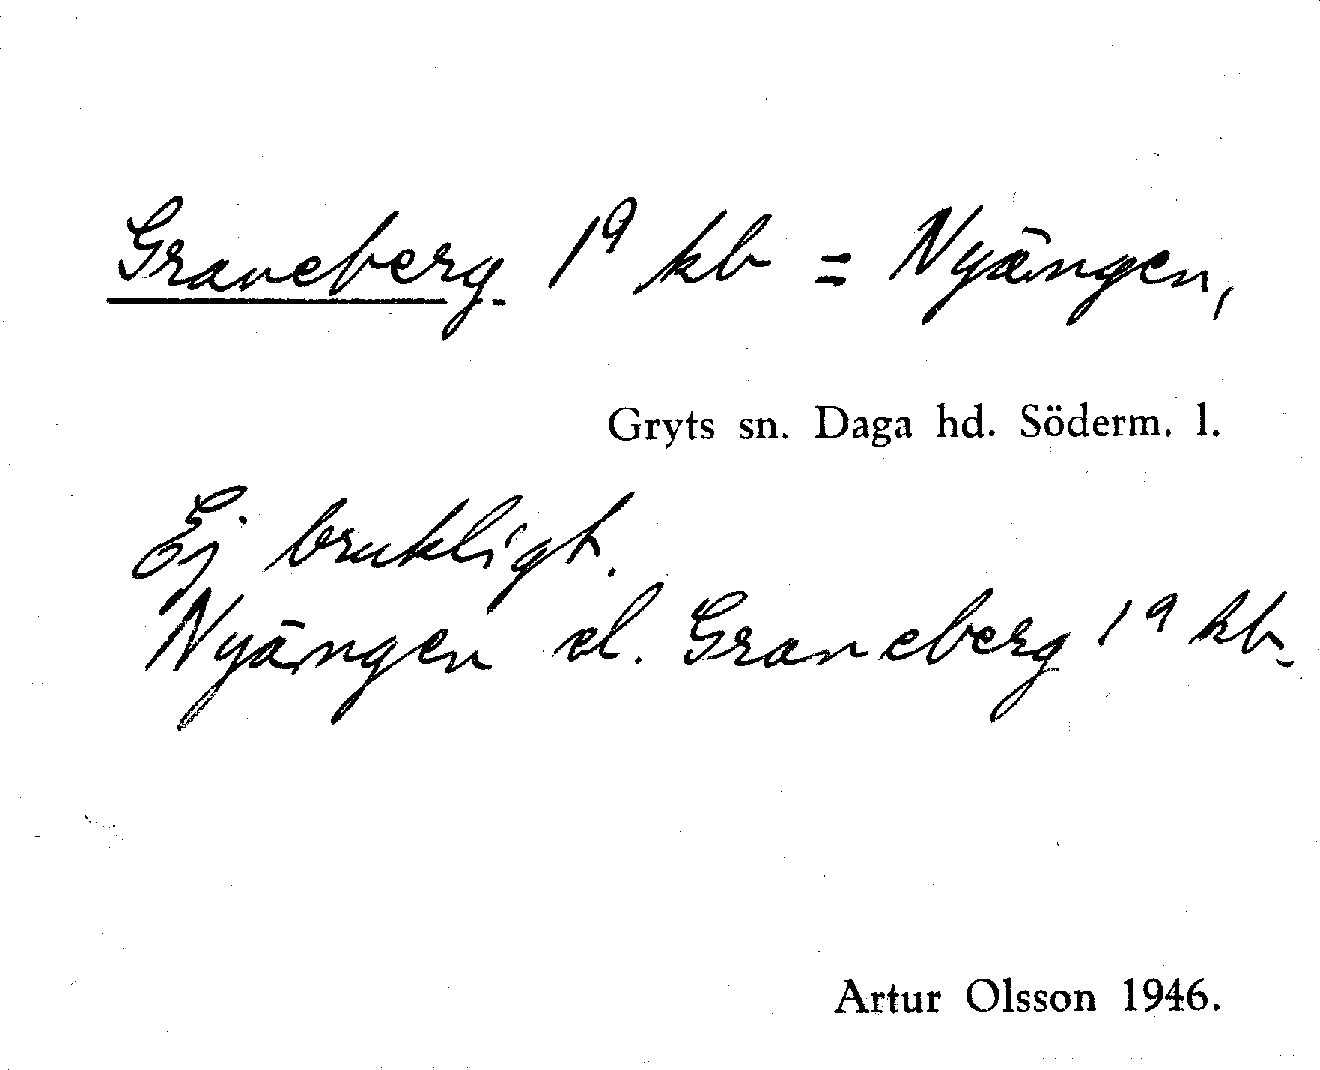 Graneberg 1⁹ kb = Nyängen,
Gryts sn. Daga hd. Söderm. l.
Ej brukligt.
Nyängen el. Graneberg 1⁹ kb.
Artur Olsson 1946.